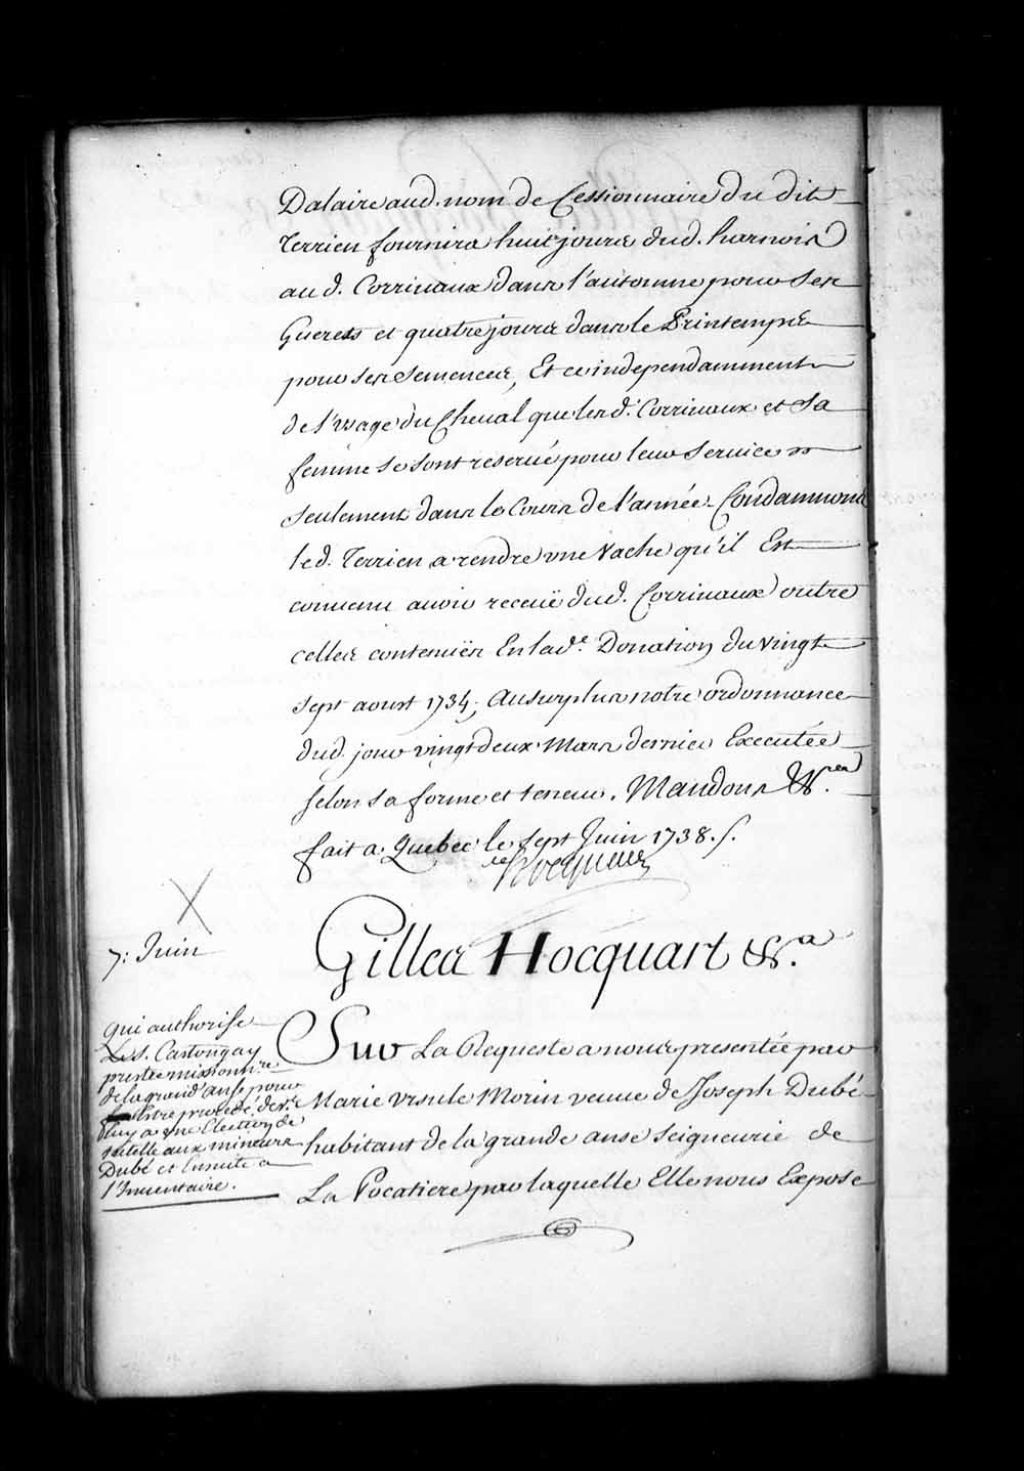 Dalaire aud. nom de Cessionnaire du dit
Terrien fournira huit jours dud. harnois
au d. Corrivaux dans l'automne pour Ses
Guerets et quatre jours dans le Printemps
pour ses Semences, Et ce independamment
de l'usage du Cheval que les d. Corrivaux et Sa
femme se sont reservé pour leur Service
seulement dans le Cours de l'année. Condamnons
led. Terrien a rendre une Vache qu'il Est
convenu avoir receüe dud. Corrivaux outre
celles contenües En lad.e Donation du vingt
sept aoust 1734, Au surplus notre ordonnance
dud. jour vingt deux Mars dernier Executée
selon sa forme et teneur. Mandons &.
fait a Quebec le sept Juin 1738. /.
Hocquart
7: Juin
Gilles Hocquart &.a
qui authorise
Le S. Castongay
prestre missionn.re
de la grand' anse pour
estre procedé dev.t
luy a une Election de
tutelle aux mineurs
Dubé et Ensuite a
l'Inventaire.
Sur La Requeste a nous presentée par
Marie Ursule Morin veuve de Joseph Dubé
habitant de la grande anse Seigneurie de
La Pocatiere par laquelle Elle nous Expose